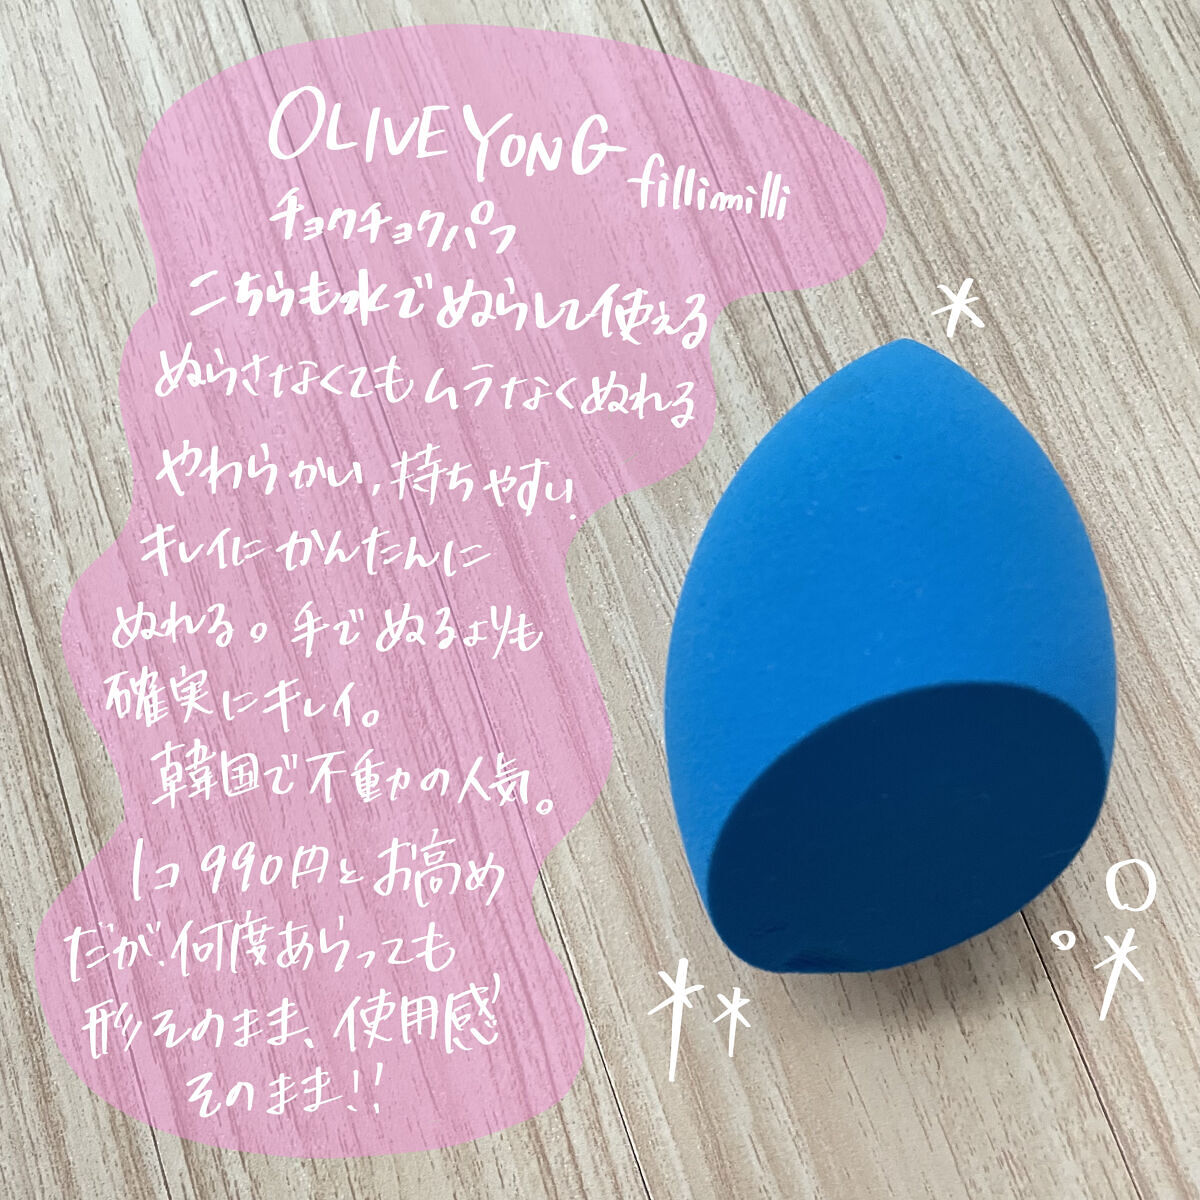 OLIVE YONG
fillimilli
チョクチョクパフ
こちらも水でぬらして使える
ぬらさなくてもムラなくぬれる
やわらかい、持ちやすい!
キレイにかんたんに
ぬれる。手でぬるよりも
確実にキレイ。
韓国で不動の人気。
1コ990円とお高め
だが、何度あらっても
形そのまま、使用感
そのまま!!